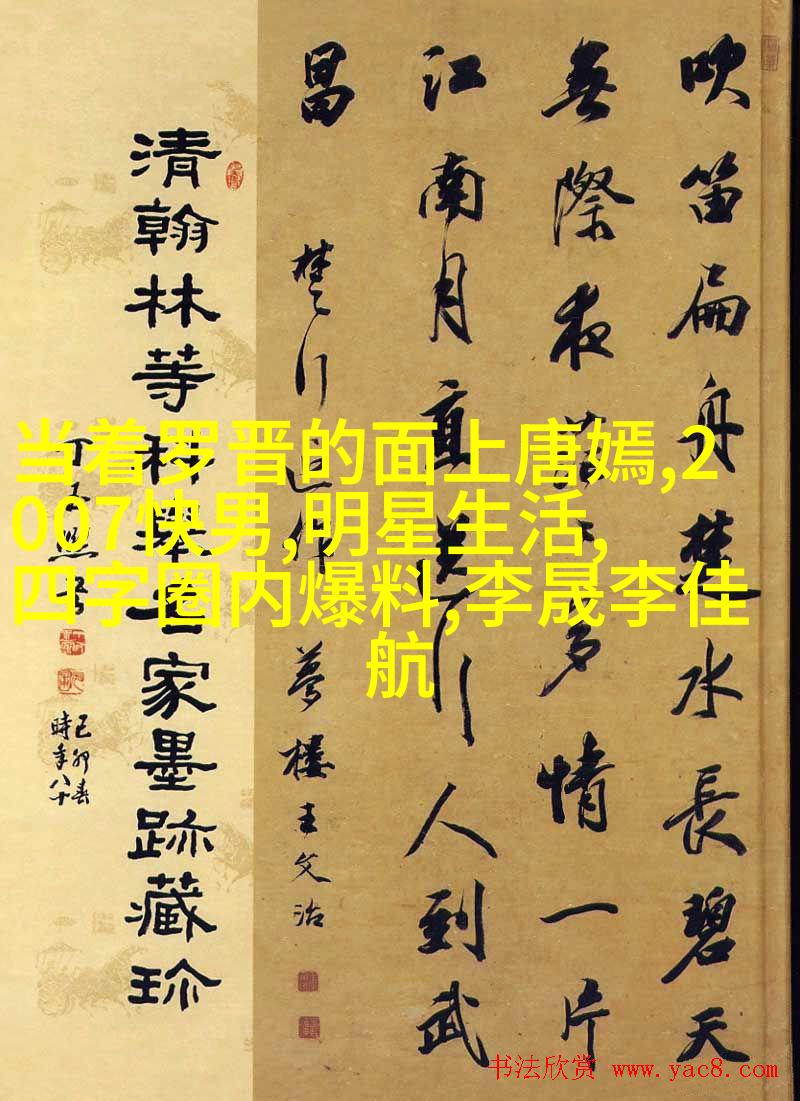 吹笛扁舟楚水長碧天
無際夜多情一片
江南月直送行人到武
昌
楚行近作 夢樓王文治
清翰林等科舉世家墨跡藏珍
己卯春
時年八十
当着罗晋的面上唐嫣,2
007快男,明星生活,
四字圈内爆料,李晟李佳
航
书法欣赏 www.yac8.com